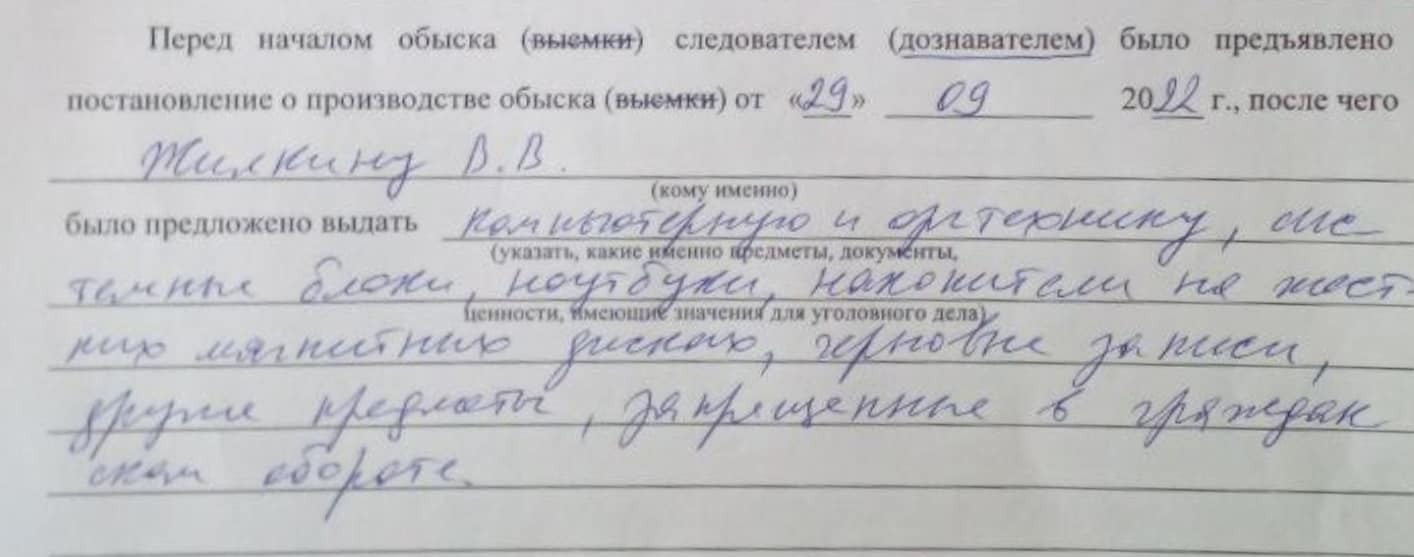 Перед началом обыска (выемки) следователем (дознавателем) было предъявлено
постановление о производстве обыска (выемки) от «29» 09 2022 г., после чего
Жилкину В.В.
(кому именно)
было предложено выдать компьютерную и оргтехнику, сис
(указать, какие именно предметы, документы,
темные блоки, ноутбуки, накопители на жест-
ценности, имеющие значения для уголовного дела)
ких магнитных дисках, черновые записи,
другие предметы, запрещенные в граждан
ском обороте.